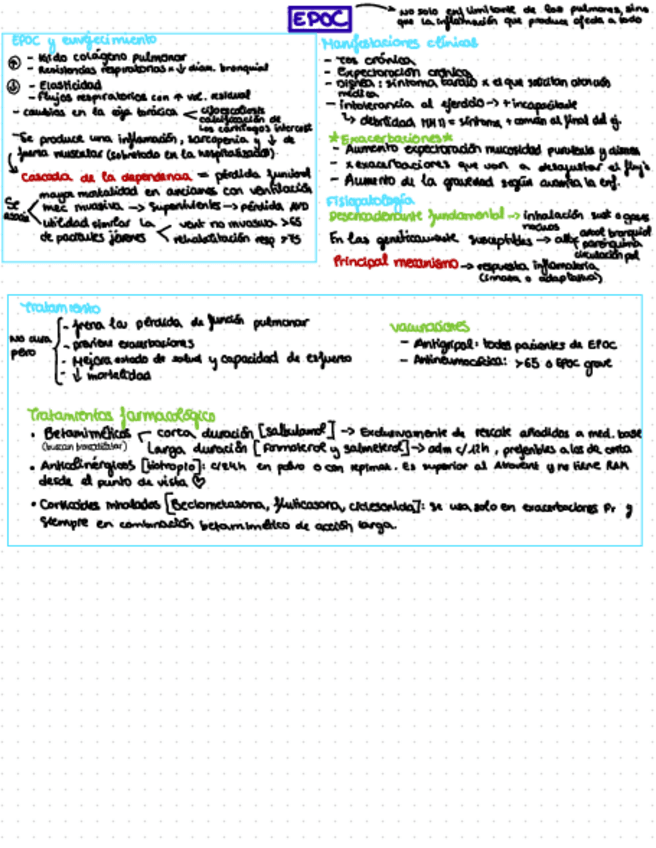 EPOC
No solo enf limitante de los pulmones, sino
que la inflamación que produce afecta a todo
EPOC y envejecimiento
↑ - Rigido colágeno pulmonar
- Resistencias respiratorias x ↓ diám. bronquial
↓ - Elasticidad
- Flujos respiratorios con ↑ vol. residual
- cambios en la caja torácica < cifoescoliosis
calcificación de
los cartílagos intercost
- Se produce una inflamación, sarcopenia y ↓ de
fuerza muscular (sobretodo en la hospitalizados)
Cascada de la dependencia = pérdida funcional
Se asocia
mayor mortalidad en ancianos con ventilación
mec invasiva → supervivientes → pérdida AVD
utilidad similar la
de pacientes jóvenes
vent no invasiva >65
rehabilitación resp >75
Manifestaciones clínicas
- Tos crónica
- Expectoración crónica
- Disnea: síntoma tardío x el que solicitan atención
médica
- Intolerancia al ejercicio → + incapacitante
↳ debilidad = síntoma + común al final del ej.
*Exacerbaciones*
- Aumento expectoración mucosidad purulenta y disnea
- x exacerbaciones que van a desajustar el flujo
- Aumento de la gravedad según avanza la enf.
Fisiopatología
Desencadenante fundamental → inhalación sust o gases
nocivos
En las genéticamente susceptibles →
árbol bronquial
parénquima
circulación pul
Principal mecanismo → respuesta inflamatoria
(innata o adaptativa)
Tratamiento
No cura
pero
- frena la pérdida de función pulmonar
- previene exacerbaciones
- Mejora estado de salud y capacidad de esfuerzo
- ↓ mortalidad
Vacunaciones
- Antigripal: todos pacientes de EPOC
- Antineumocócica: >65 o EPOC grave
Tratamientos farmacológico
• Betamiméticos
(buscan broncodilatar)
corta duración [salbutamol] → Exclusivamente de rescate añadidos a med. base
Larga duración [Formoterol y salmeterol] → adm c/12h, preferibles a los de corta
• Anticolinérgicos [tiotropio]: c/24h en polvo o con repimat. Es superior al Atrovent y no tiene RAM
desde el punto de vista ♡
• Corticoides inhalados [Beclometasona, fluticasona, ciclesonida]: se usa solo en exacerbaciones Fr y
siempre en combinación betamimético de acción larga.